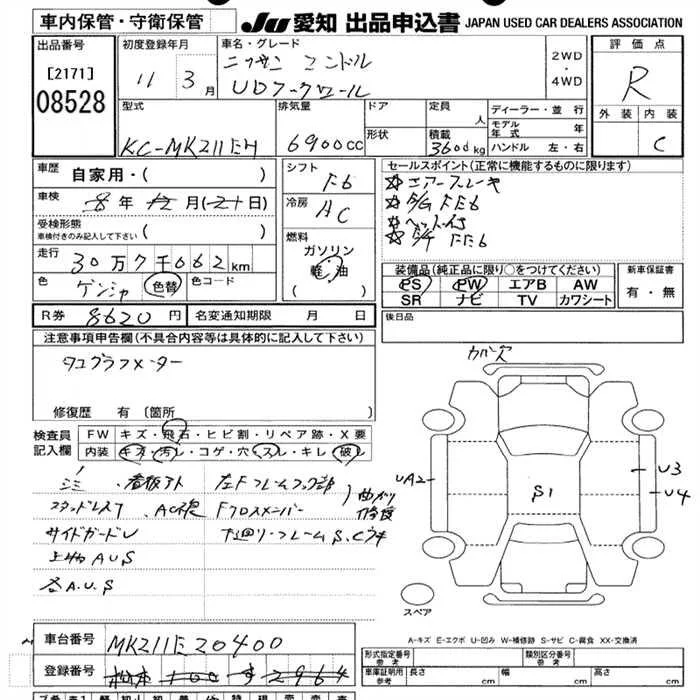 車内保管・守衛保管
JU 愛知 出品申込書 JAPAN USED CAR DEALERS ASSOCIATION
出品番号
[2171]
08528
初度登録年月
11 年 3 月
車名・グレード
ニッサン コンドル
UDフックロール
2WD
・
4WD
評価点
R
外装 内装
C
型式
KC-MK211EH
排気量
6900cc
ドア
形状
定員 人
積載 3600kg
ディーラー・並行
モデル年式 年
ハンドル 左・右
車歴
自家用・( )
車検
8年12月(21日)
受検形態
車検付きのみ記入して下さい ( )
走行
30万7千662km
色
ゲンシャ 色替
色コード
シフト
F6
冷房
AC
燃料
ガソリン
軽油
( )
セールスポイント(正常に機能するものに限ります)
☆エアーブレーキ
☆E/G FE6
☆ベット付
☆
装備品(純正品に限り○をつけてください)
PS PW エアB AW
SR ナビ TV カワシート
新車保証書
有・無
R券 8620円
名変通知期限 月 日
後日品
注意事項申告欄(不具合内容等は具体的に記入して下さい)
タコグラフメーター
修復歴 有〔箇所
検査員
記入欄
FW キズ・飛石・ヒビ割・リペア跡・X要
内装 キズ・汚レ・コゲ・穴・スレ・キレ・破レ
看板アト 左Fフレームフック部
スタッドレス7 ACR視 Fクロスメンバー
曲がり
修復
サイドガードU 下廻り・フレームS.Cウキ
上物AUS
各A.U.S
カバーズ
UA2
S1
U3
U4
スペア
A-キズ E-エクボ U-凹み W-補修跡 S-サビ C-腐食 XX-交換済
車台番号
MK211E20400
登録番号
松本 100 す 2964
形式指定番号
参考
類別区分番号
参考
車庫証明用
参考
長さ cm
幅 cm
高さ cm